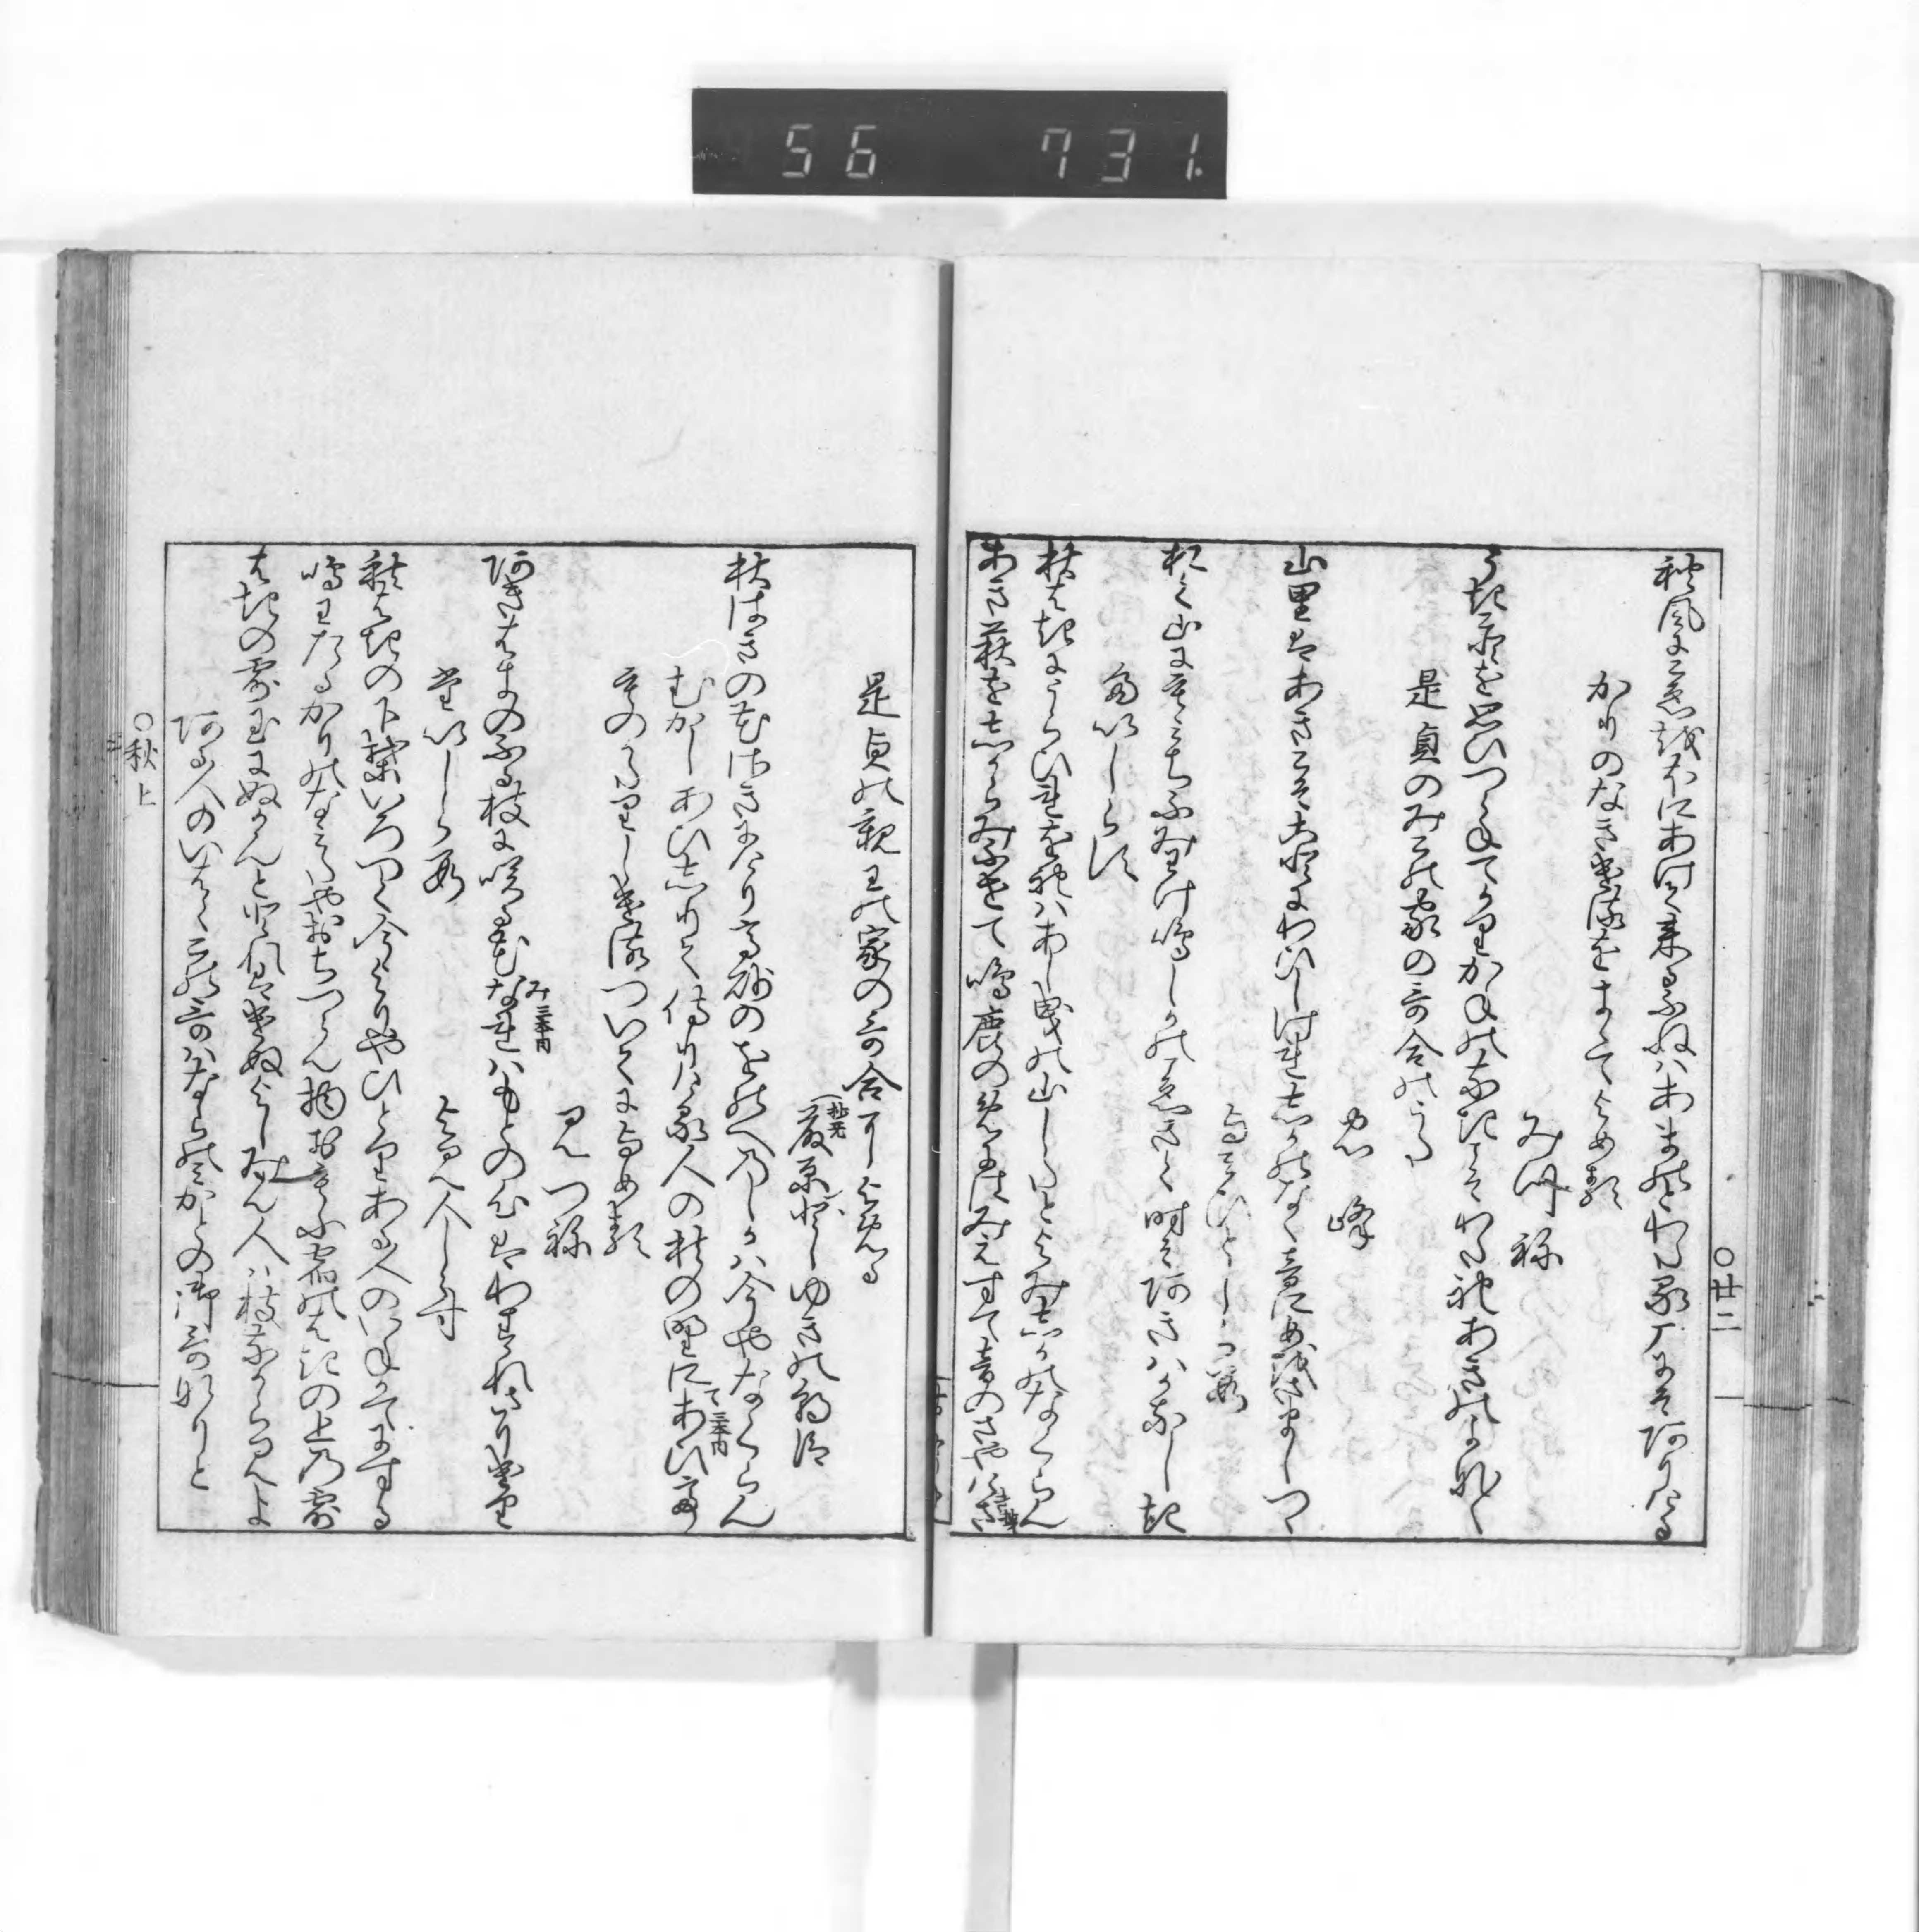 56 731.
秋風にこゑをほにあけてくる舟はあまのとわたる厂にそありける
かりのなきけるをきゝてよめる
みつね
うき事を思ひつらねてかりかねのなきこそわたれあきのよな〳〵
是貞のみこの家の哥合のうた
忠峰
山里はあきこそことにわひしけれしかのなくねにめをさましつゝ
よみひとしらす
おく山にもみちふみわけ鳴しかのこゑきく時そあきはかなしき
たいしらす
秋はきにうらひれをれはあし曳の山したとよみしかのなくらん
あき萩をしからみふせて鳴鹿のめには みえすて音のさやけさ
〇廿二
是貞の親王の家の哥合によめる
藤原としゆきの朝臣
秋はきの花さきにけり高砂のをのへのしかは今やなくらん
むかしあひしりて侍りける人の秋の野にあひて
三本内
ものかたりしけるついてによめる
みつね
あきはきのふる枝に咲る花みれはもとの心はわすれさりけり
み三本内
たいしらす
よみ人しらす
秋はきの下葉いろつく今よりやひとりある人のいねかてにする
鳴わたるかりのなみたやおちつらん物おもふ宿のはきの上の露
はきの露玉にぬかんととれはけぬよしみん人は枝なからみよ
ある人のいはくこの哥はならのみかとの御哥なりと
〇秋上